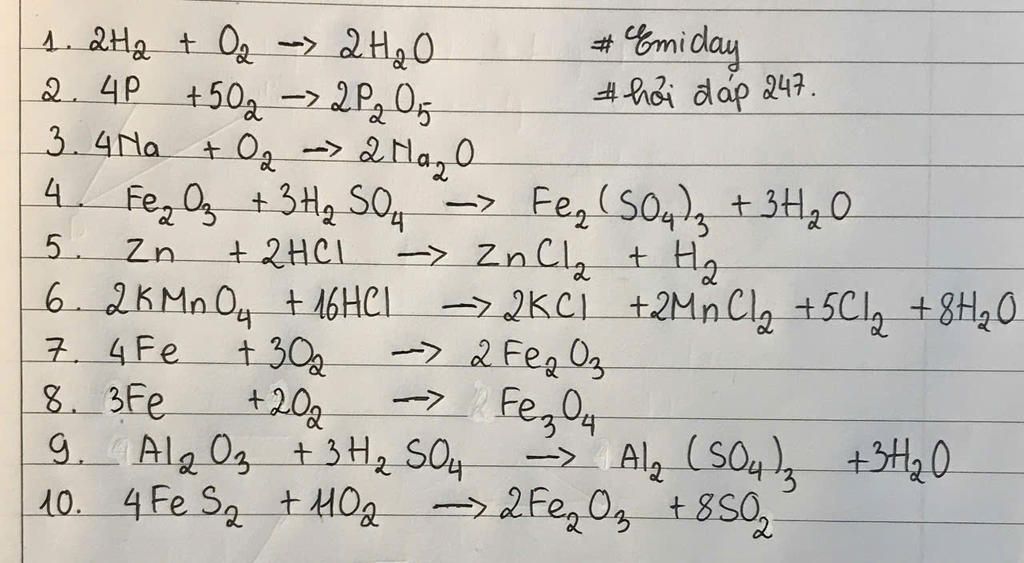 1. 2H₂ + O₂ → 2H₂O # Emiday
2. 4P + 5O₂ → 2P₂O₅ # hỏi đáp 247.
3. 4Na + O₂ → 2Na₂O
4. Fe₂O₃ + 3H₂SO₄ → Fe₂(SO₄)₃ + 3H₂O
5. Zn + 2HCl → ZnCl₂ + H₂
6. 2KMnO₄ + 16HCl → 2KCl + 2MnCl₂ + 5Cl₂ + 8H₂O
7. 4Fe + 3O₂ → 2Fe₂O₃
8. 3Fe + 2O₂ → Fe₃O₄
9. Al₂O₃ + 3H₂SO₄ → Al₂(SO₄)₃ + 3H₂O
10. 4FeS₂ + 11O₂ → 2Fe₂O₃ + 8SO₂